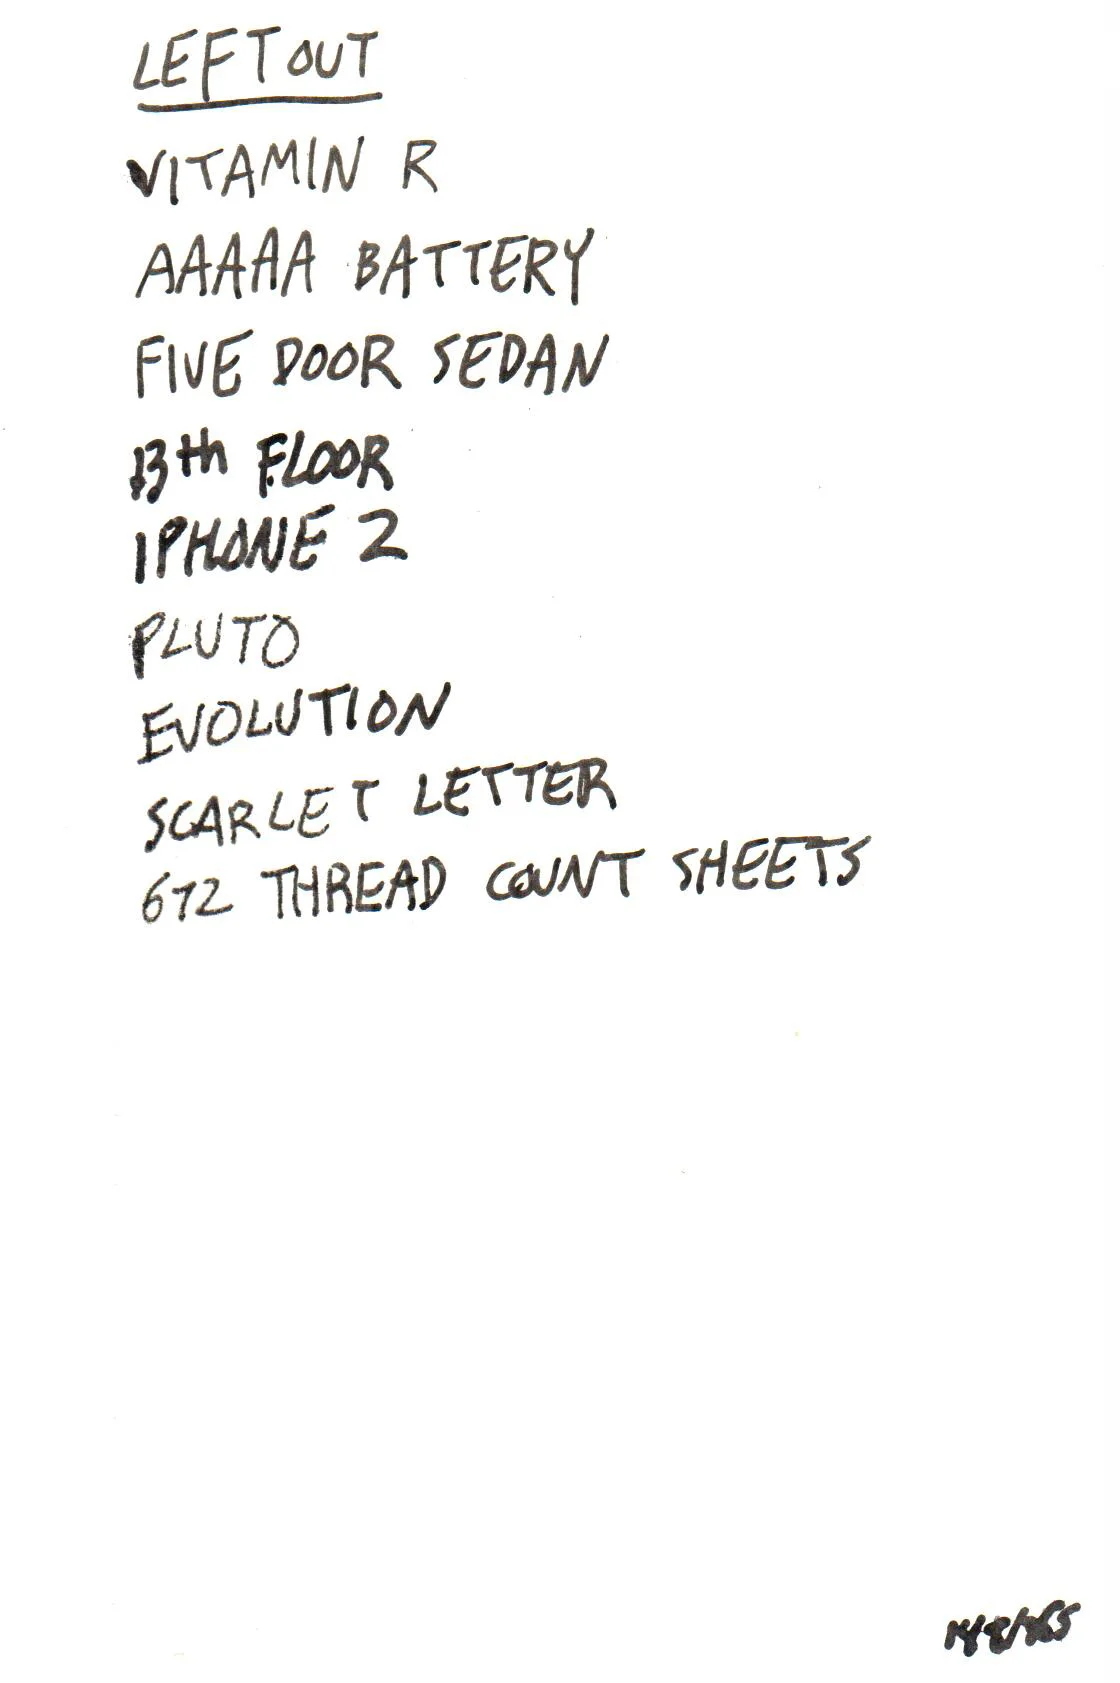 LEFT OUT
VITAMIN R
AAAAA BATTERY
FIVE DOOR SEDAN
13th FLOOR
IPHONE 2
PLUTO
EVOLUTION
SCARLET LETTER
672 THREAD COUNT SHEETS